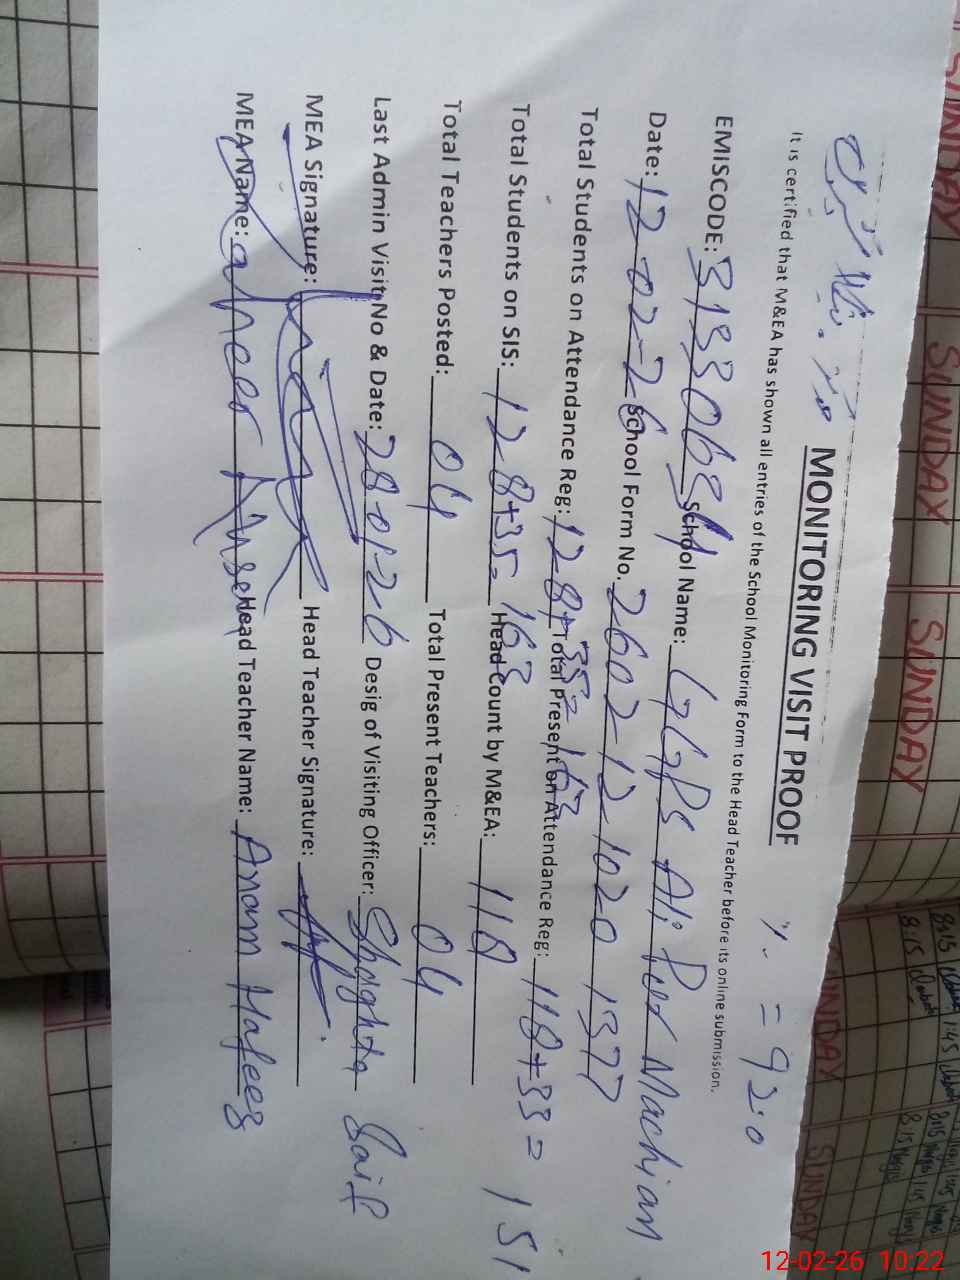 MONITORING VISIT PROOF
% = 92.0
It is certified that M&EA has shown all entries of the School Monitoring Form to the Head Teacher before its online submission.
EMISCODE: 31330684 School Name: GGPS Ali Pur Machian
Date: 12-02-26 School Form No. 2602-12-1020 1377
Total Students on Attendance Reg: 128+35=163 Total Present on Attendance Reg: 118+33= 151
Total Students on SIS: 128+35=163 Head Count by M&EA: 118
Total Teachers Posted: 04 Total Present Teachers: 04
Last Admin Visit No & Date: 28-01-26 Desig of Visiting Officer: Shugfta Saif
MEA Signature: Head Teacher Signature:
MEA Name: Head Teacher Name: Anam Hafeez
SUNDAY
SUNDAY
SUNDAY
SUNDAY
SUNDAY
SUNDAY
12-02-26 10:22